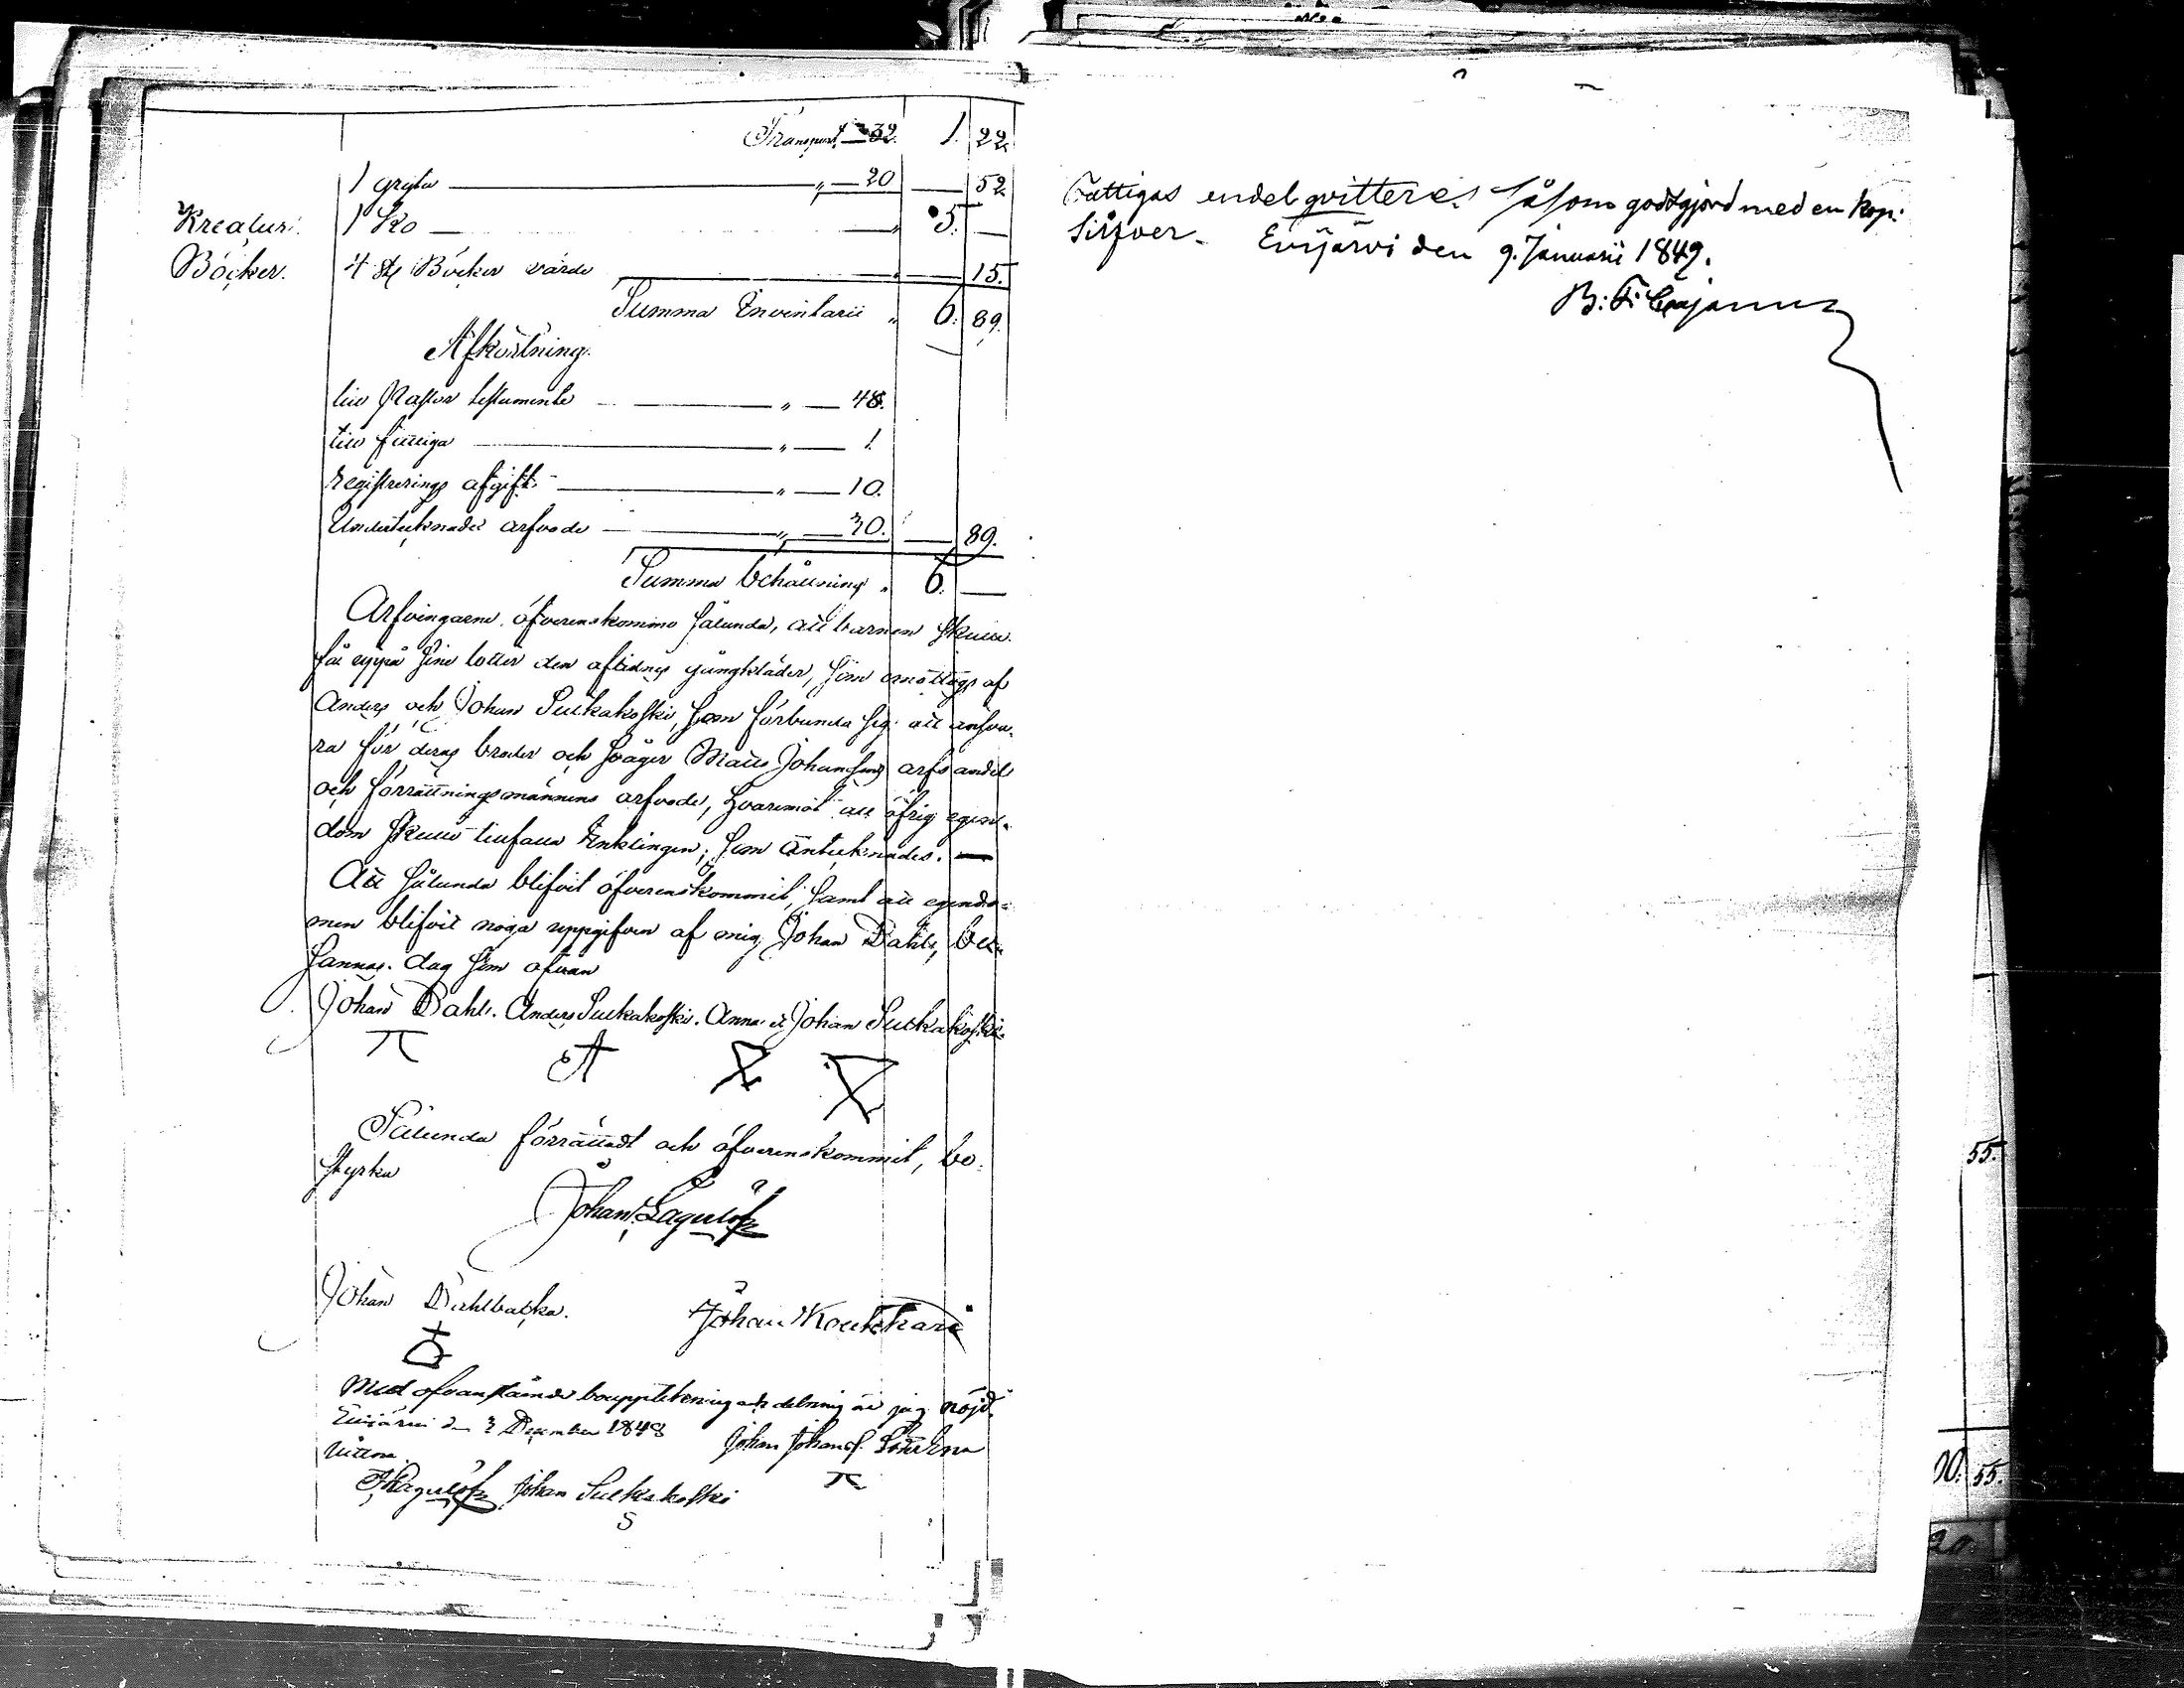 Transport " — 32. 1. 22.
1 gryta — " — 20 — 52.
Kreatur. 1 Ko — " 5. —
Böcker. 4 st Böcker värde — " 15.
Summa Inventarii " 6. 89.
Afkortning.
till Pastor testamente — " — 48.
till fattiga — " — 1.
registrerings afgift — " — 10.
Undertecknades arfvode — " — 30. — 89.
Summa behållning " 6. —
Arfvingarne öfverenskommo sålunda, att barnen skulle
få uppå sine lotter den aflidnes gångkläder, som emottogs af
Anders och Johan Sulkakoski, som förbundo sig att ansva-
ra för deras broder och svåger Matts Johanssons arfs andel
och förrättningsmännens arfvode, hvaremot all öfrig egen-
dom skulle tillfalla Enklingen; som antecknades. —
Att sålunda blifvit öfverenskommit, samt att egendo-
men blifvit noga uppgifven af mig Johan Dahl,
dag som ofvan
Johan Dahl. Anders Sulkakoski. Anna et Johan Sulkakoski.
A
Sålunda förrättadt och öfverenskommit, be-
styrka
Johan Lagerlöf
Johan Dahlbacka. Johan Koukkari
Med ofvanstående bouppteckning och delning är jag nöjd.
Evijärvi den 3 December 1848 Johan Johans.
Vittna.
Lagerlöf Johan Sulkakoski
S
Fattigas andel qvitteras såsom godtgjord med en kop:
Silfver. Evijärvi den 9. Januarii 1849.
B: F:
55.
00. 55.
20.